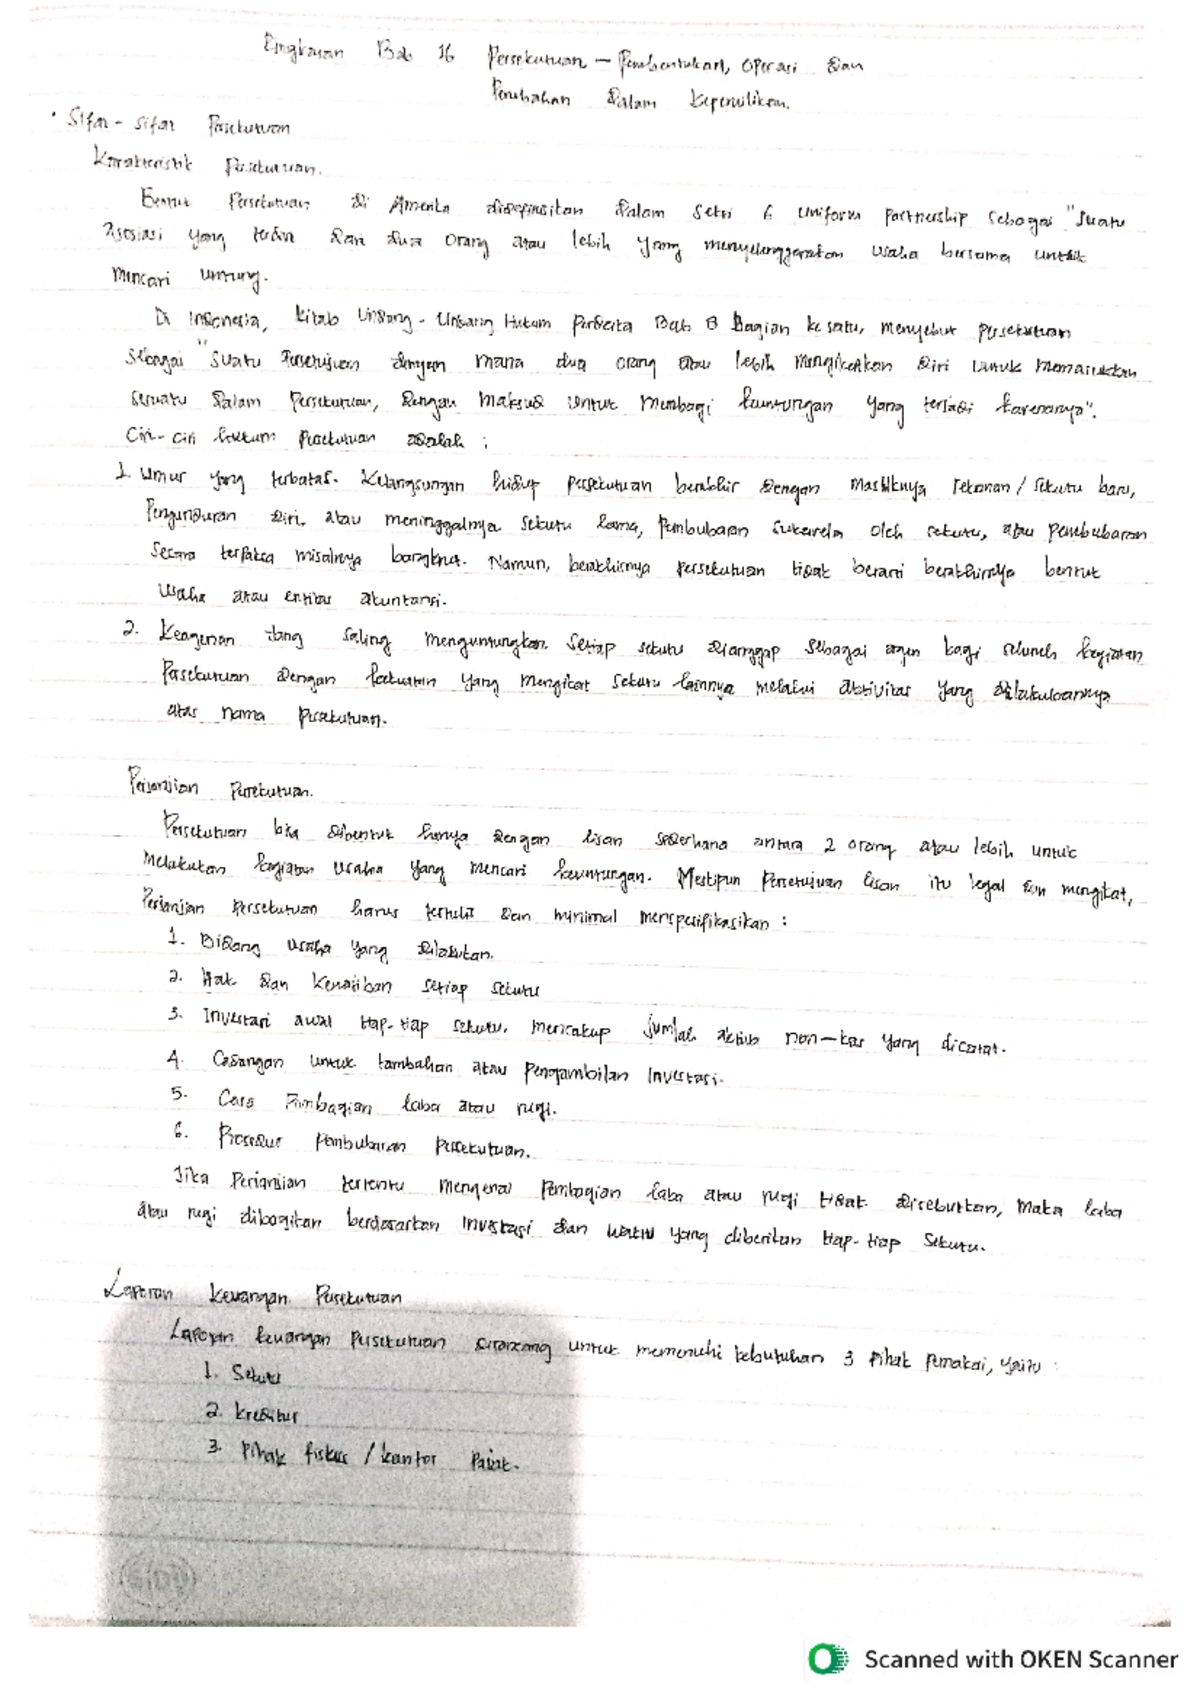 Ringkasan Bab 16 Persekutuan – Pembentukan, Operasi dan
Perubahan dalam Kepemilikan.
• Sifat-sifat Persekutuan
Karakteristik Persekutuan.
Bentuk Persekutuan di Amerika didefinisikan dalam Seksi 6 Uniform Partnership sebagai "suatu
asosiasi yang terdiri dari dua orang atau lebih yang menyelenggarakan usaha bersama untuk
mencari untung.
Di Indonesia, Kitab Undang-Undang Hukum Perdata Bab 8 Bagian kesatu, menyebut persekutuan
sebagai "suatu persetujuan dengan mana dua orang atau lebih mengikatkan diri untuk memasukkan
sesuatu dalam persekutuan, dengan maksud untuk membagi keuntungan yang terjadi karenanya".
Ciri-ciri hukum persekutuan adalah :
1. Umur yang terbatas. Kelangsungan hidup persekutuan berakhir dengan masuknya rekanan / sekutu baru,
Pengunduran diri, atau meninggalnya sekutu lama, pembubaran sukarela oleh sekutu, atau pembubaran
secara terpaksa misalnya bangkrut. Namun, berakhirnya persekutuan tidak berarti berakhirnya bentuk
usaha atau entitas akuntansi.
2. Keagenan yang saling menguntungkan. Setiap sekutu dianggap sebagai agen bagi seluruh kegiatan
Persekutuan dengan kekuatan yang mengikat sekutu lainnya melalui aktivitas yang dilakukannya
atas nama persekutuan.
Perjanjian Persekutuan.
Persekutuan bisa dibentuk hanya dengan lisan sederhana antara 2 orang atau lebih untuk
melakukan kegiatan usaha yang mencari keuntungan. Meskipun persetujuan lisan itu legal dan mengikat,
Perjanjian persekutuan harus tertulis dan minimal menspesifikasikan :
1. Bidang usaha yang dilakukan.
2. Hak dan Kewajiban setiap sekutu
3. Investasi awal tiap-tiap sekutu, mencakup jumlah aktiva non-kas yang dicatat.
4. Cadangan untuk tambahan atau pengambilan investasi.
5. Cara Pembagian laba atau rugi.
6. Prosedur pembubaran persekutuan.
Jika Perjanjian tertentu mengenai pembagian laba atau rugi tidak disebutkan, maka laba
atau rugi dibagikan berdasarkan investasi dan waktu yang diberikan tiap-tiap sekutu.
Laporan Keuangan Persekutuan
Laporan keuangan persekutuan dirancang untuk memenuhi kebutuhan 3 pihak pemakai, yaitu :
1. Sekutu
2. Kreditur
3. Pihak fiskus / kantor pajak.
Scanned with OKEN Scanner